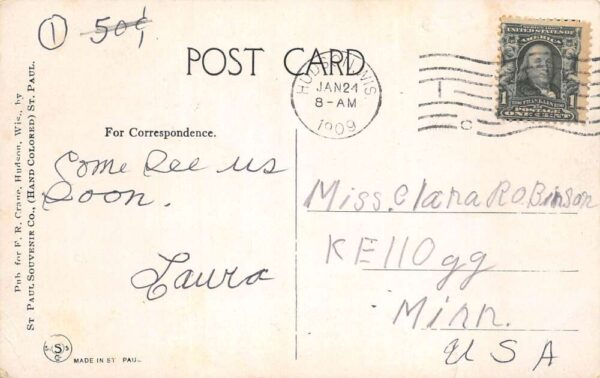 ① 50¢
POST CARD
HUDSON, WIS.
JAN 24
8-AM
1909
UNITED STATES OF AMERICA
1 1
POSTAGE
ONE CENT
For Correspondence.
Come See us
Soon.
Laura
Miss. Clara Robinson
KEllOgg
Minn.
USA
Pub. for F. R. Crane, Hudson, Wis., by
ST PAUL SOUVENIR CO., (HAND COLORED) ST. PAUL.
MADE IN ST PAUL